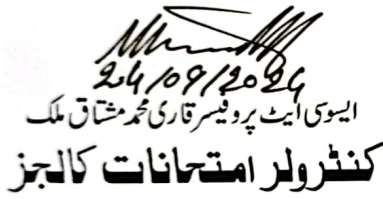 24/09/2024
ایسوسی ایٹ پروفیسر قاری محمد مشتاق ملک
کنٹرولر امتحانات کالجز